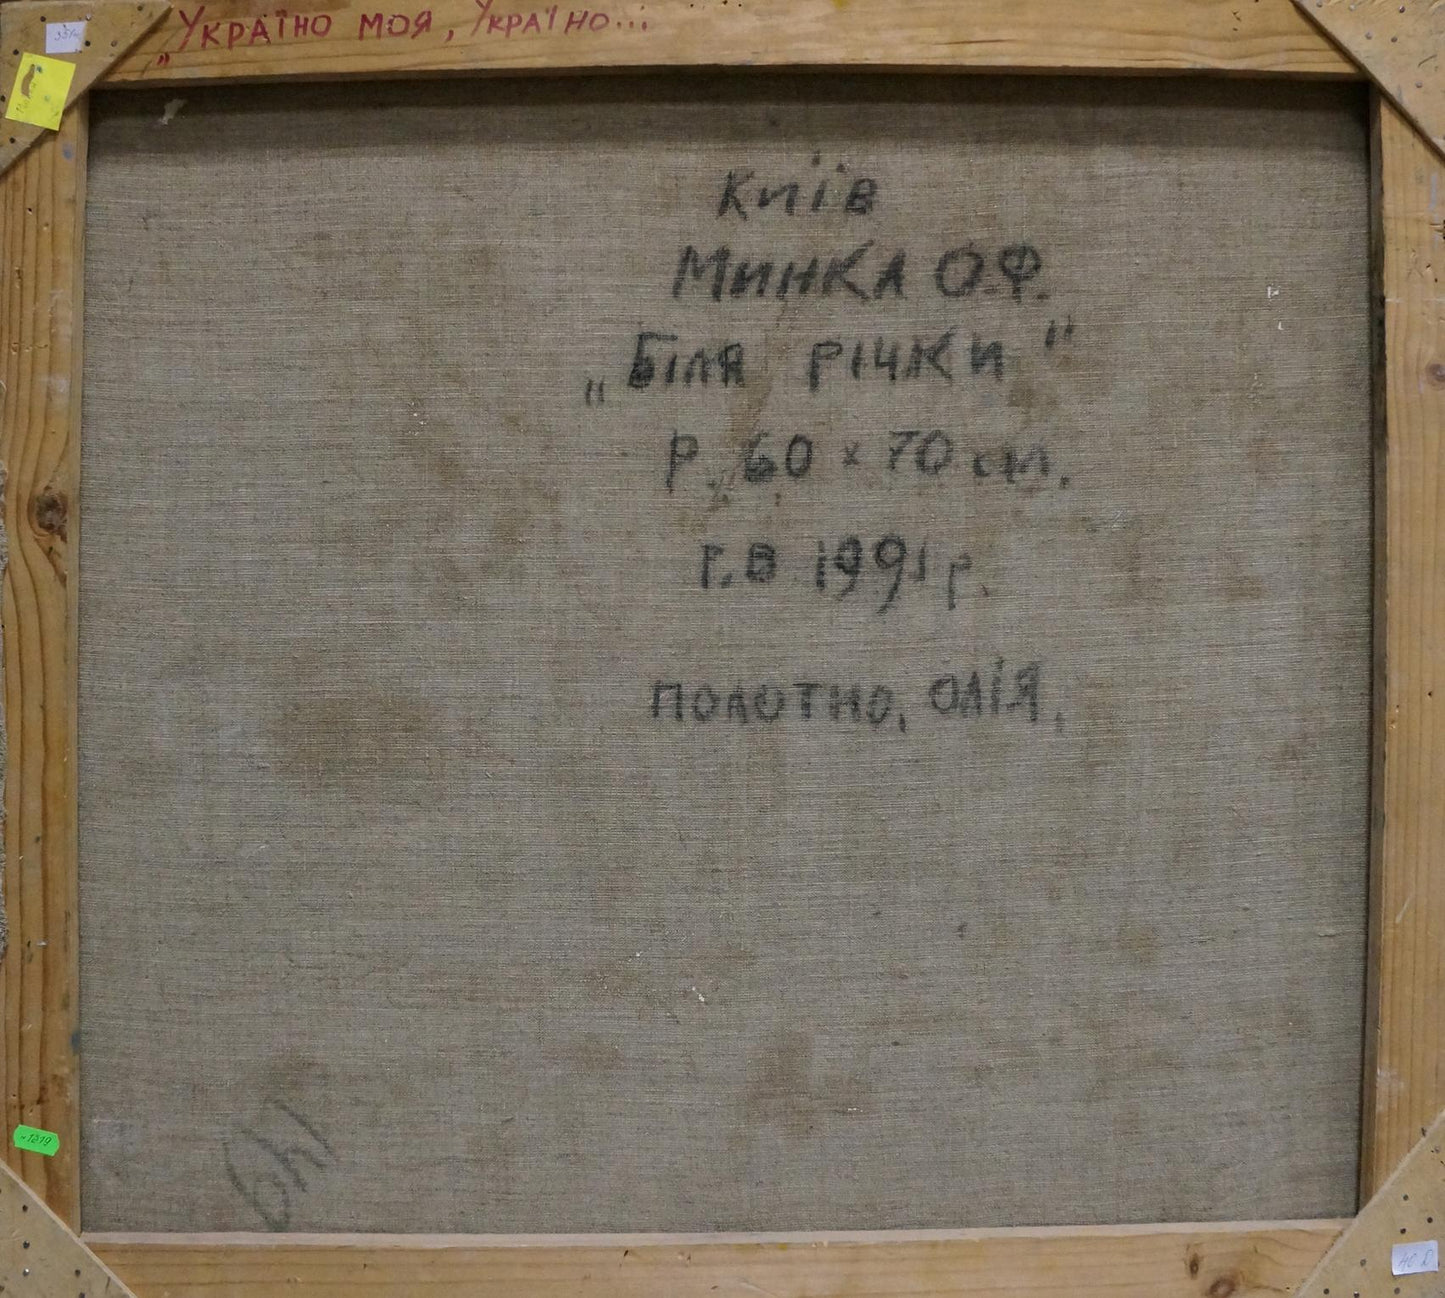 „Україно моя, Україно...
Київ
Минка О.Ф.
„Біля річки"
р. 60 x 70 см.
Г.В 1991 р.
полотно, олія,
149
н1219
40 D